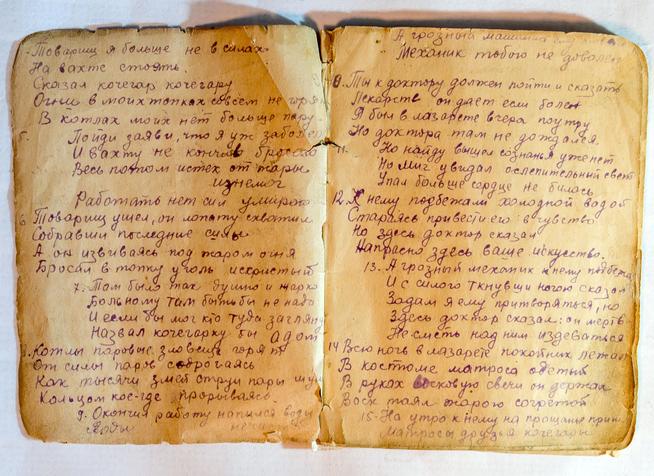 Товарищ я больше не в силах
На вахте стоять.
Сказал кочегар кочегару
Огни в моих топках совсем не горят
В котлах моих нет больше пару.
5. Пойди заяви, что я уж заболел
И вахту не кончив бросаю
Весь потом истек от жары
изнемог
Работать нет сил умираю
6. Товарищ ушел, он лопату схватил
Собравши последние силы
А он извиваясь под жаром огня
Бросал в топку уголь искристый
7. Там было так душно и жарко
Больному там быть бы не надо
И если бы мог кто туда заглянут
Назвал кочегарку бы адом
8. Котлы паровые зловещe горят
От силы паров содрогаясь
Как тысячи змей струи пары шум
Кольцом кое-где прорываясь.
9. Окончил работу напился воды
Воды
А грозный машина
Механик тобою не доволен
Ты к доктору должен пойти и сказать
Лекарств он даёт если болен
Я был в лазарете вчера поутру
Но доктора там не дождался
11. На найду вышел сознанья уже нет
На миг увидал ослепительный свет
Упал больше сердце не билась
12. К нему подбежали холодной вод ой
Стараясь привести его в чувство
Но здесь доктор сказал
Напрасно здесь ваше искусство.
13. А грозный механик к нему подбежа
И с силою ткнувши ногою сказал
Задам я ему притворяться, но
Здесь доктор сказал: он мертв
Не сметь над ним издеваться
14 Всю ночь в лазарете покойник лежал
В костюме матроса одетый
В руках восковую свечи он держал
Воск таял жарою согретой
15- На утро к нему на прощанье приш
Матросы друзья кочегары